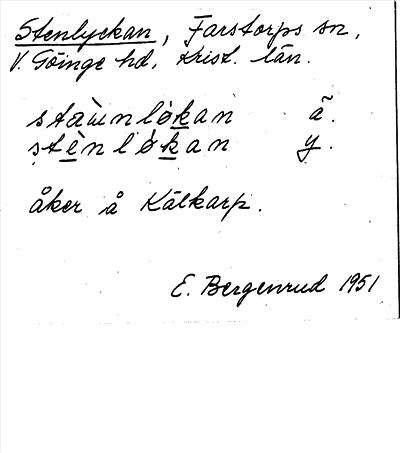 Stenlyckan, Farstorps sn,
V. Göinge hd, Krist. län.
stæ̀ɯnløkan ä.
stènløkan y.
åker å Kälkarp.
E. Bergenrud 1951